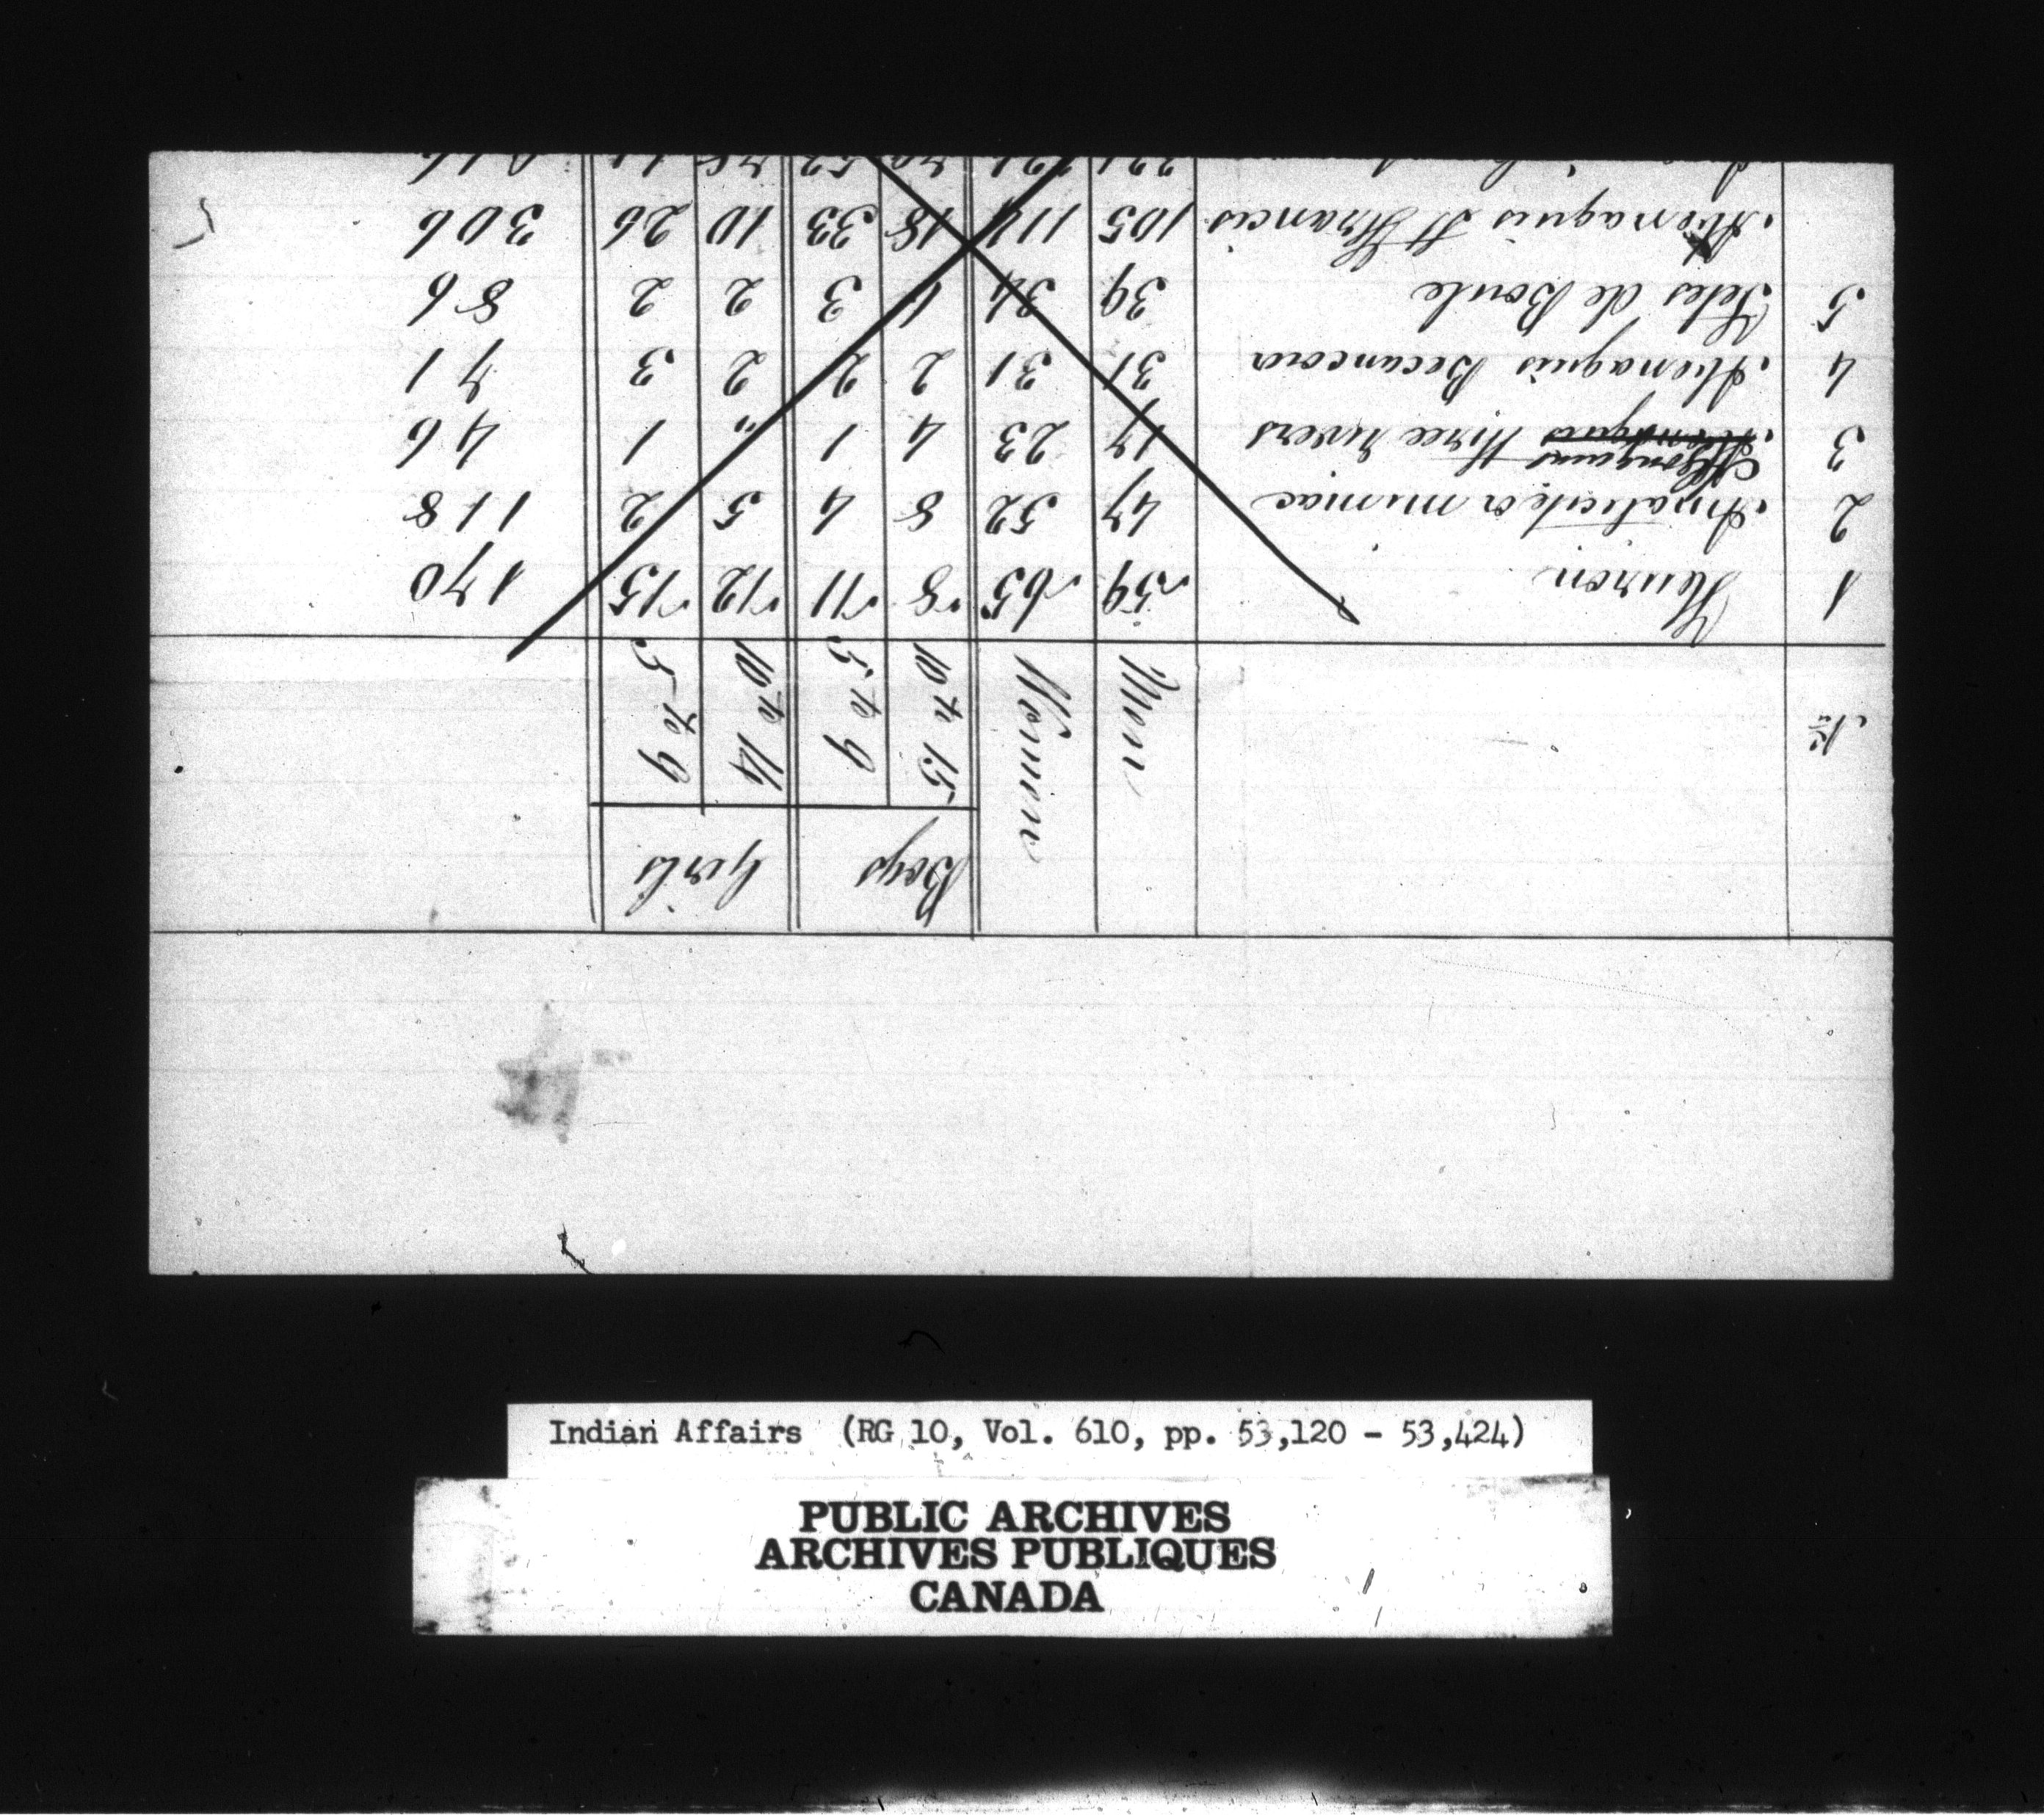 Boys Girls
No Men Women 10 to 15 5 to 9 10 to 14 5 to 9
1 Huron 59 65 8 11 12 15 170
2 Amalicite or micmac 47 52 8 4 5 2 118
3 Algonquins three rivers 17 23 4 1 " 1 46
4 Abenaquis Becancour 31 31 2 2 2 3 71
5 Tetes de Boule 39 34 6 3 2 2 86
Abenaquis St Francis 105 114 18 33 10 26 306
Indian Affairs (RG 10, Vol. 610, pp. 53,120 - 53,424)
PUBLIC ARCHIVES
ARCHIVES PUBLIQUES
CANADA